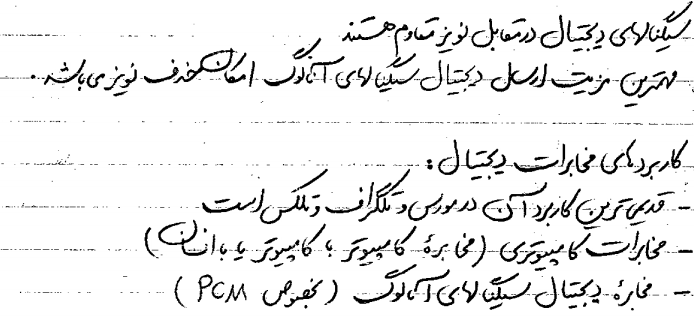 سیگنالهای دیجیتال در مقابل نویز مقاوم هستند
مهمترین مزیت ارسال دیجیتال سیگنالهای آنالوگ امکان حذف نویز می‌باشد.
کاربردهای مخابرات دیجیتال:
- قدیمی‌ترین کاربرد آن در مورس و تلگراف و تلکس است
- مخابرات کامپیوتری (مخابرهٔ کامپیوتر با کامپیوتر یا با انسان)
- مخابرهٔ دیجیتال سیگنالهای آنالوگ (بخصوص PCM)